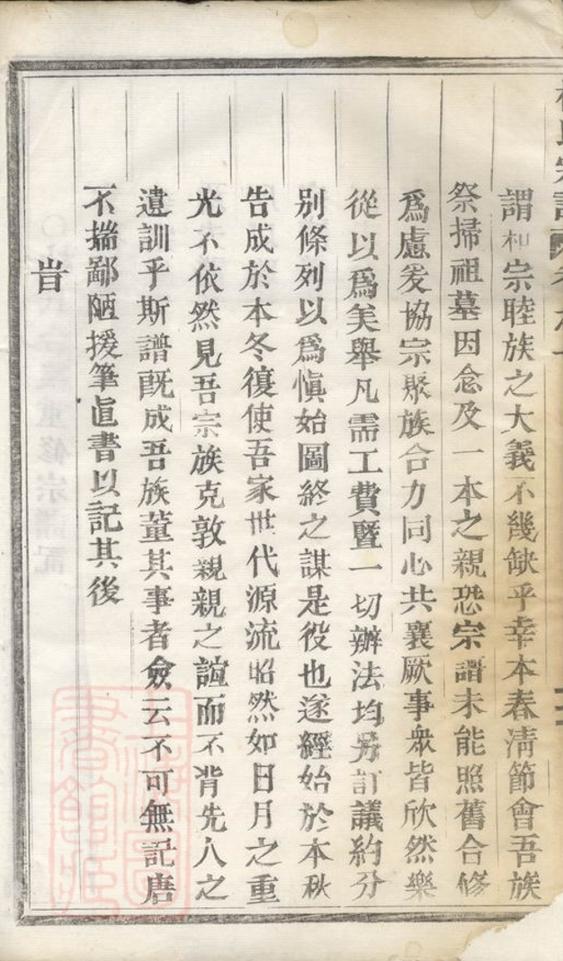 謂和宗睦族之大義不幾缺乎幸本春清節會吾族
祭掃祖墓因念及一本之親恐宗譜未能照舊合修
爲慮爰協宗聚族合力同心共襄厥事衆皆欣然樂
從以爲美舉凡需工費暨一切辦法均另訂議約分
别條列以爲愼始圖終之謀是役也遂經始於本秋
告成於本冬復使吾家世代源流昭然如日月之重
光不依然見吾宗族克敦親親之誼而不背先人之
遺訓乎斯譜旣成吾族董其事者僉云不可無記唐
不揣鄙陋援筆直書以記其後
旹